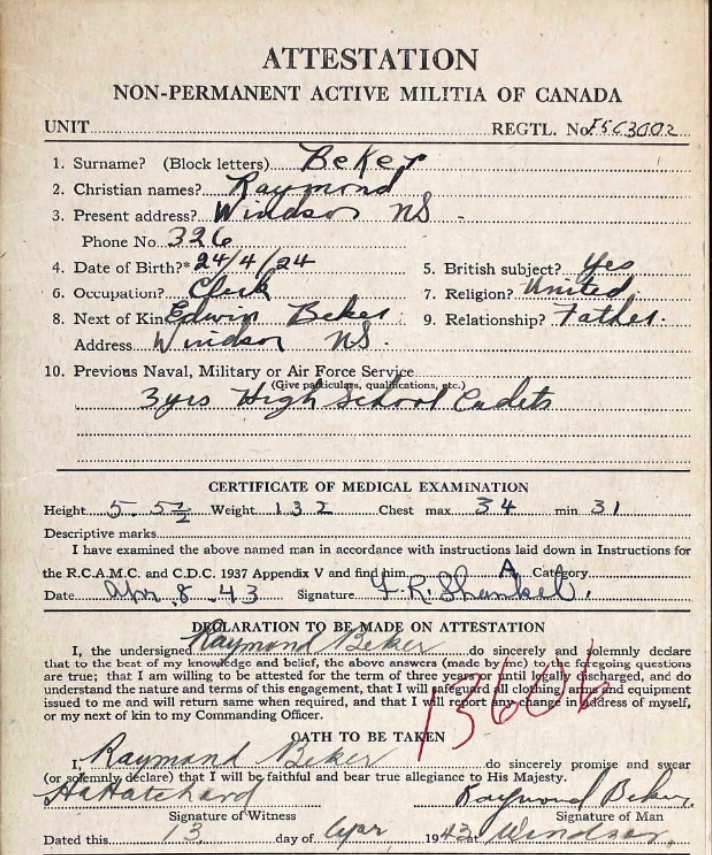 ATTESTATION
NON-PERMANENT ACTIVE MILITIA OF CANADA
UNIT REGTL. No. F5C3002
1. Surname? (Block letters) Beker
2. Christian names? Raymond
3. Present address? Windsor NS
Phone No. 326
4. Date of Birth?* 24/4/24 5. British subject? Yes
6. Occupation? Clerk 7. Religion? United
8. Next of Kin Edwin Beker 9. Relationship? Father.
Address Windsor NS.
10. Previous Naval, Military or Air Force Service
(Give particulars, qualifications, etc.)
3 yrs High School Cadets
CERTIFICATE OF MEDICAL EXAMINATION
Height 5. 5½ Weight 132 Chest max 34 min 31
Descriptive marks
I have examined the above named man in accordance with instructions laid down in Instructions for
the R.C.A.M.C. and C.D.C. 1937 Appendix V and find him A Category
Date Apr. 8. 43 Signature F.R. Shankel.
DECLARATION TO BE MADE ON ATTESTATION
I, the undersigned Raymond Beker do sincerely and solemnly declare
that to the best of my knowledge and belief, the above answers (made by me) to the foregoing questions
are true; that I am willing to be attested for the term of three years until legally discharged, and do
understand the nature and terms of this engagement, that I will safeguard all clothing, arms and equipment
issued to me and will return same when required, and that I will report any change in address of myself,
or my next of kin to my Commanding Officer.
13606
OATH TO BE TAKEN
I, Raymond Beker do sincerely promise and swear
(or solemnly declare) that I will be faithful and bear true allegiance to His Majesty.
Hatchard Raymond Beker.
Signature of Witness Signature of Man
Dated this 13 day of Apr 1943 at Windsor.